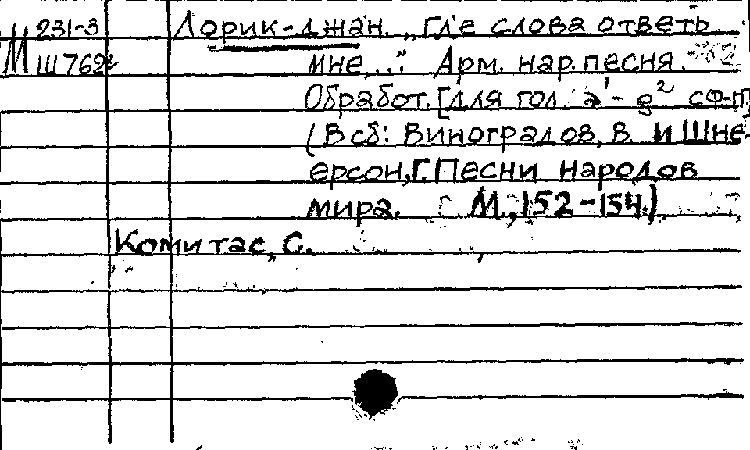 М 231-3 Лорик-джан. „Где слова ответь
Ш762г мне,..." Арм. нар. песня.
Обработ. [для гол. a¹- g² с ф-п]
(В сб: Виноградов, В. и Шне-
ерсон, Г. Песни народов
мира. М., 152-154.)
Комитас, С.